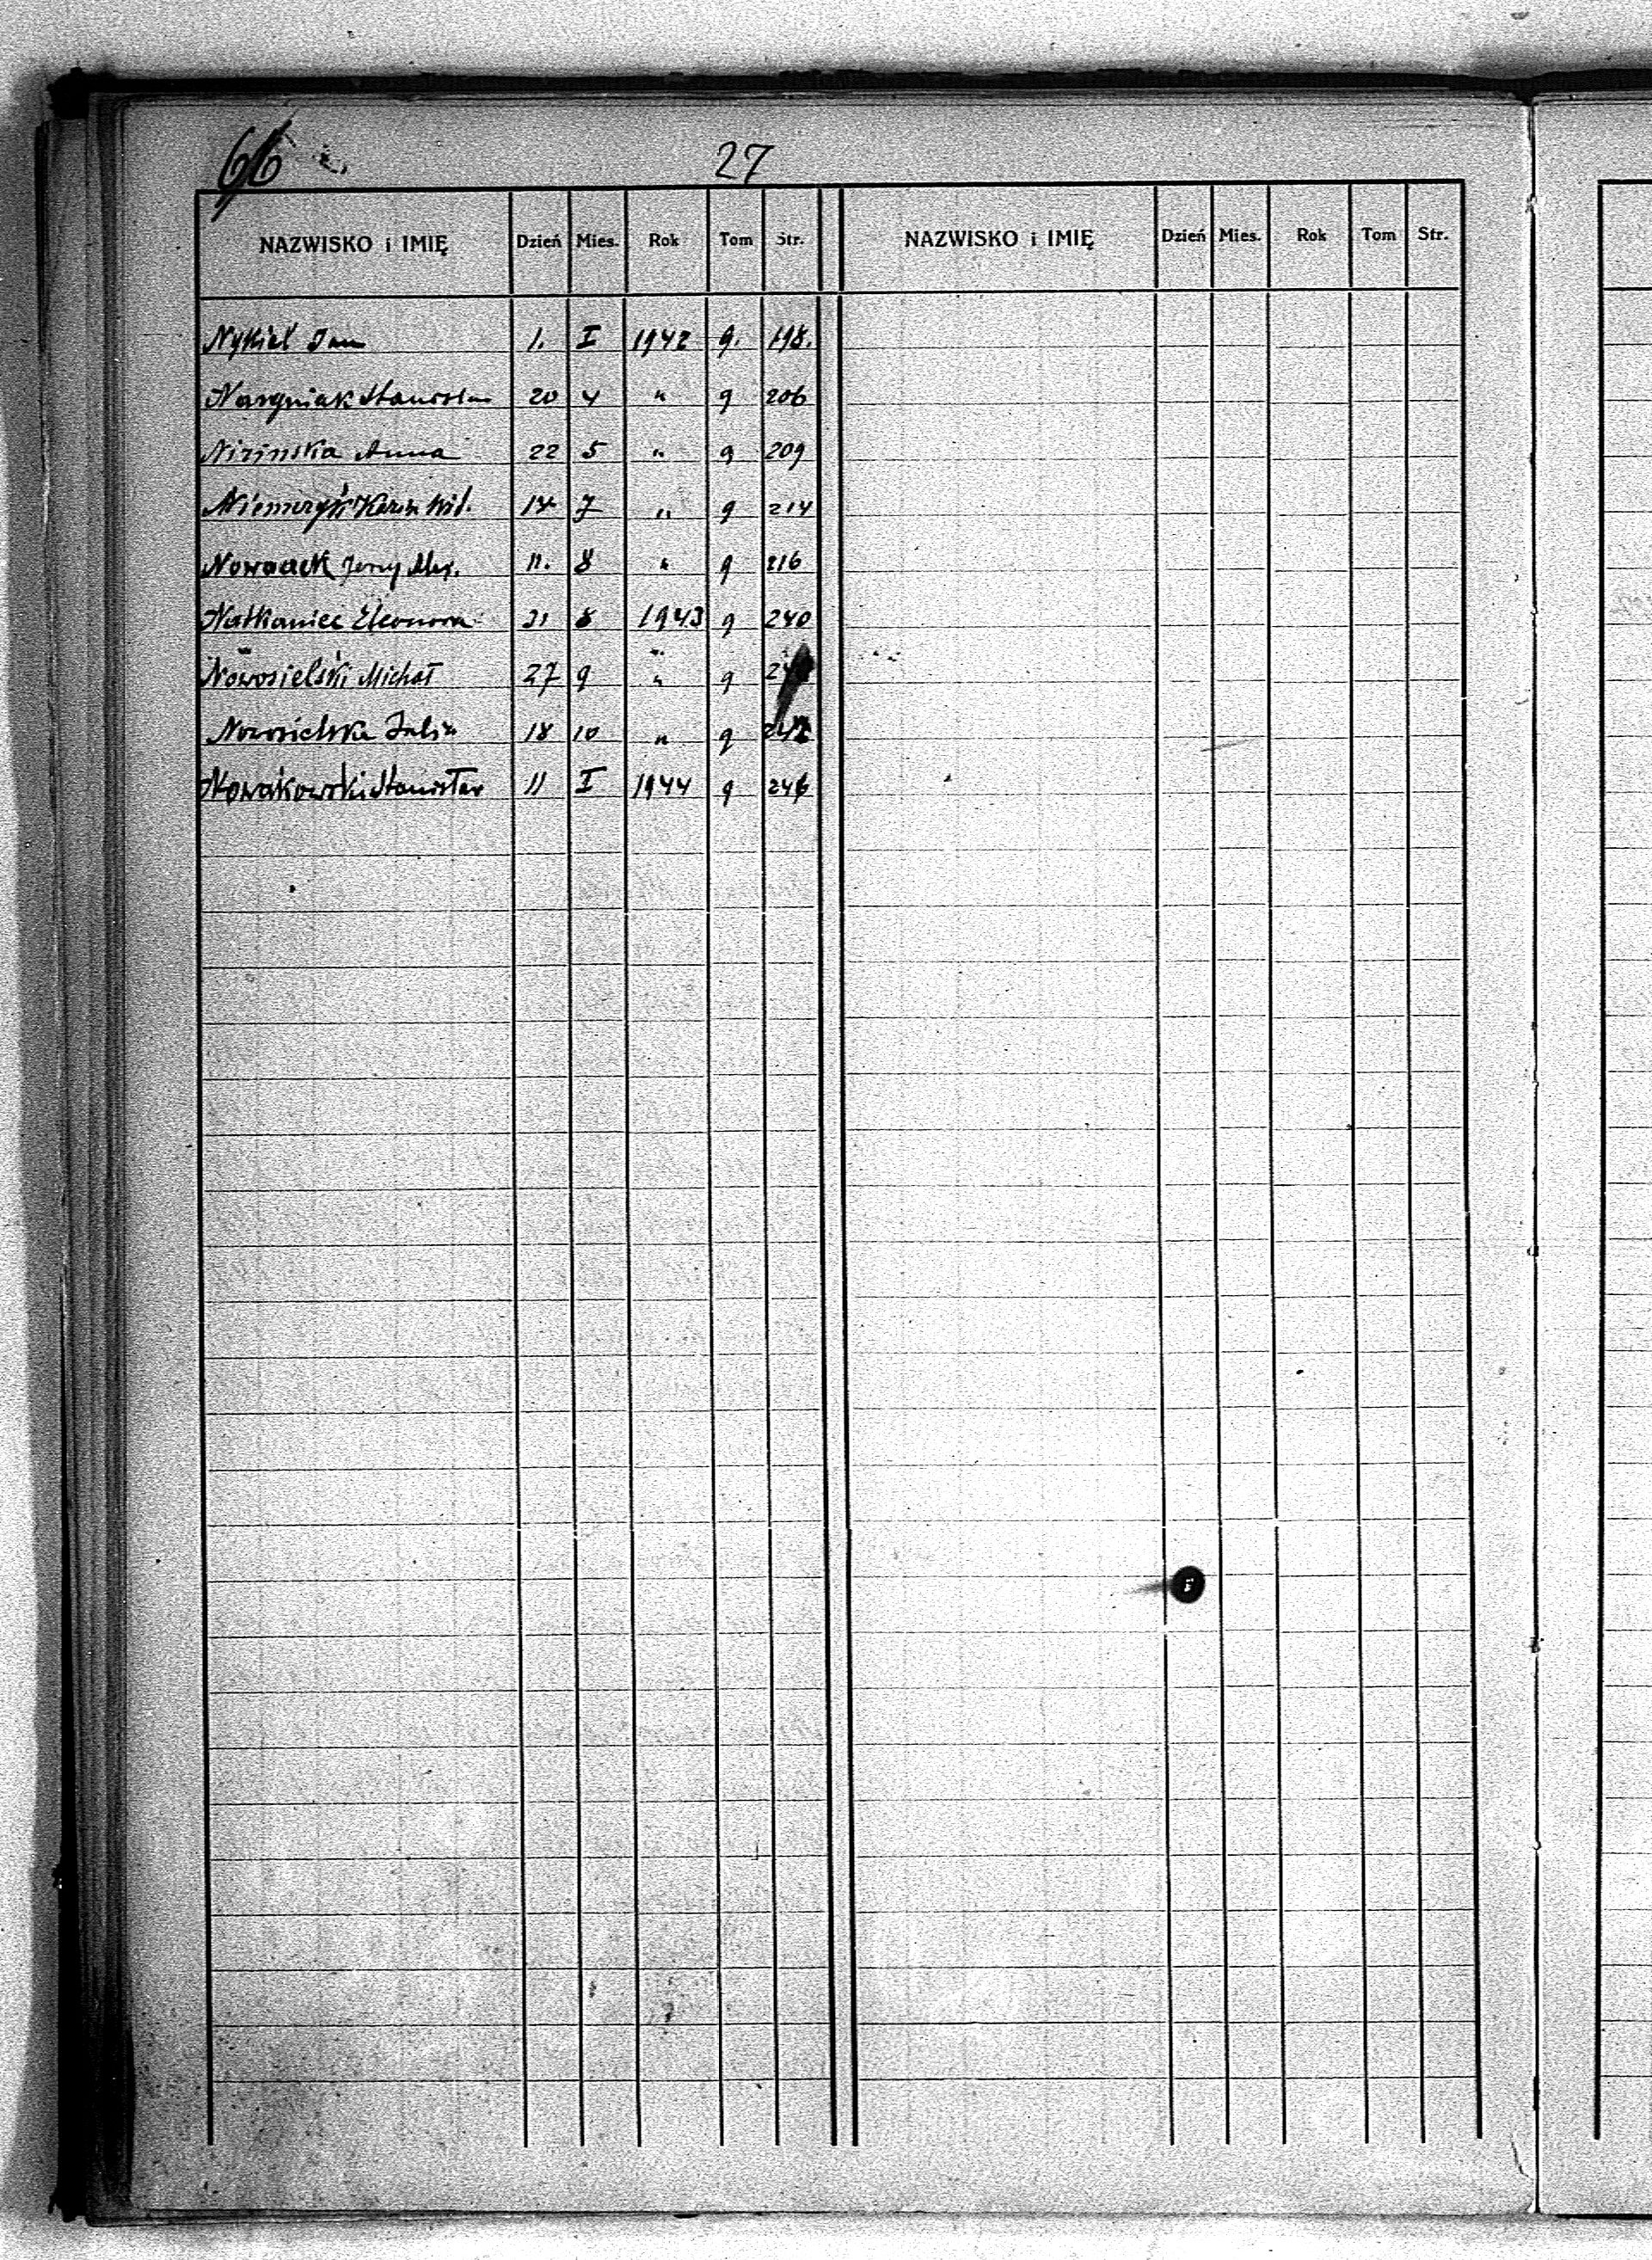 66 27
NAZWISKO i IMIĘ Dzień Mies. Rok Tom Str. NAZWISKO i IMIĘ Dzień Mies. Rok Tom Str.
Nykiel Jan 1. I 1942 9. 198.
Stanisław 20 4 " 9 206
Nizińska Anna 22 5 " 9 209
7 " 9 214
Nowacek Jerzy 11. 8 " 9 216
Natkaniec Eleonora 21 8 1943 9 240
Nowosielski Michał 27 9 " 9
Nowosielska Julia 18 10 " 9
Nowakowski Stanisław 11 I 1944 9 246